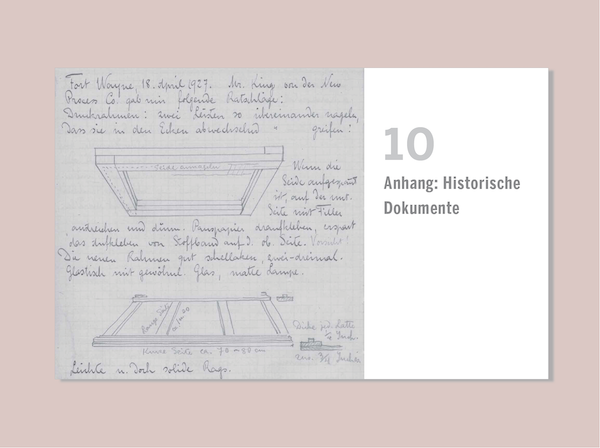 Fort Wayne, 18. April 1927. Mr. King von der New
Process Co. gab mir folgende Ratschläge:
Druckrahmen: zwei Leisten so übereinander nageln,
dass sie in den Ecken abwechselnd " greifen:
Seide annageln
Wenn die
Seide aufgespannt
ist, auf der unt.
Seite mit Filler
anstreichen und dünn. Pauspapier draufkleben, erspart
das Aufkleben von Stoffband auf d. ob. Seite. Vorsicht!
Die neuen Rahmen gut schellaken, zwei-dreimal.
Glastisch mit gewöhnl. Glas, matte Lampe.
Lange Seite
Kurze Seite ca. 78 – 88 cm
Dicke jed. Latte
Inch.
Inches
Leichte u. doch solide Rags.
10
Anhang: Historische
Dokumente